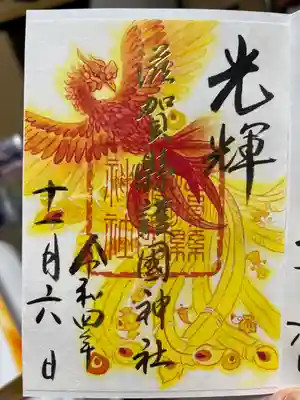 光輝
滋賀縣護國神社
令和四年
十二月六日